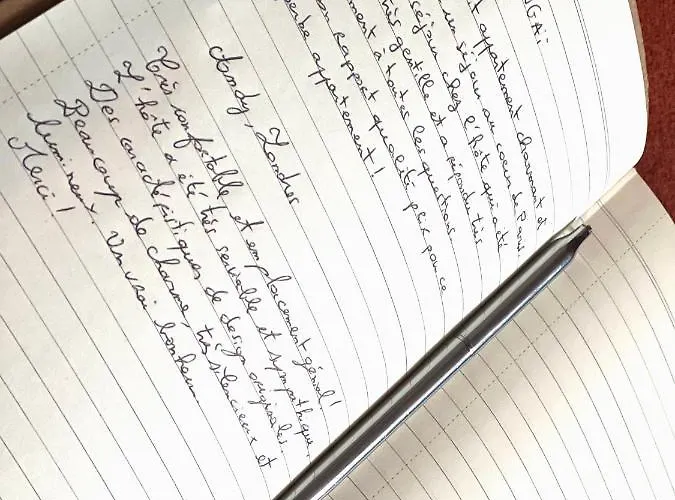 NGAi
appartement charmant et
un séjour au coeur de Paris
séjour chez l'hôte qui a été
très gentille et a répondu très
ment à toutes les questions.
on rapport qualité prix pour ce
perbe appartement!
Andy, Londres
Très confortable et emplacement génial!
L'hôte a été très serviable et sympathique.
Des caractéristiques de design originales.
Beaucoup de charme, très silencieux et
lumineux. Un vrai bonheur
Merci!